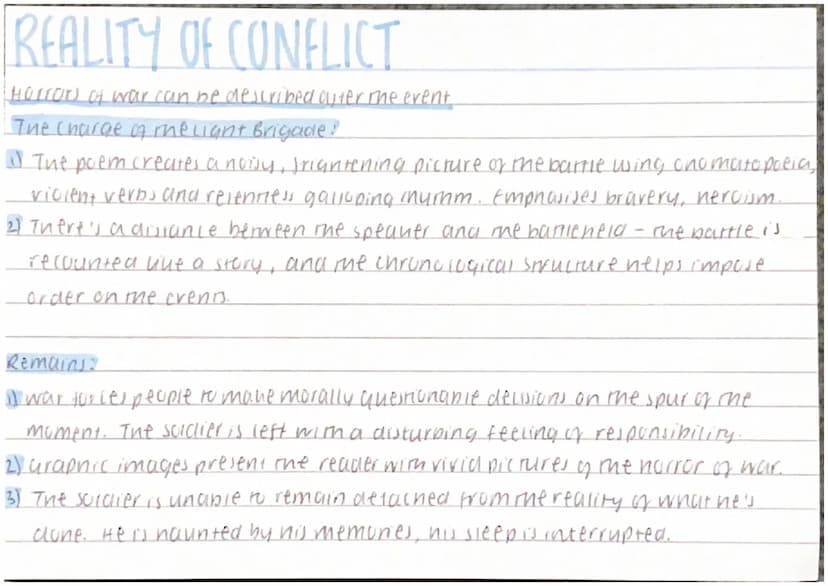 REALITY OF CONFLICT
Horrors of war can be described after the event
The Charge of the Light Brigade:
1) The poem creates a noisy, frightening picture of the battle using onomatopoeia,
violent verbs and relentless galloping rhythm. Emphasises bravery, heroism.
2) There's a distance between the speaker and the battlefield - the battle is
recounted like a story, and the chronological structure helps impose
order on the events.
Remains:
1) War forces people to make morally questionable decisions on the spur of the
moment. The soldier is left with a disturbing feeling of responsibility.
2) Graphic images present the reader with vivid pictures of the horror of war.
3) The soldier is unable to remain detached from the reality of what he's
done. He is haunted by his memories, his sleep is interrupted.